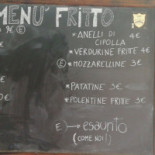 MENU' FRITTO
3€ E
ANELLI DI 4€
CIPOLLA
VERDURINE FRITTE 4€
E MOZZARELLINE 3€
€
PATATINE 3€
POLENTINE FRITTE 3€
€
E → esaurito
(COME NOI!)